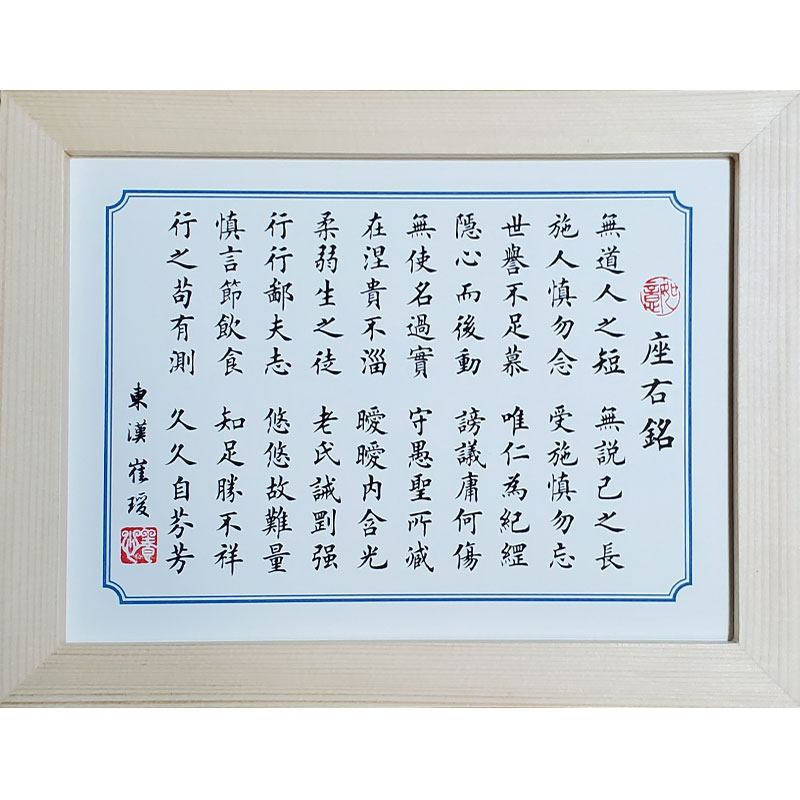 如意
座右銘
無道人之短 無說己之長
施人慎勿念 受施慎勿忘
世譽不足慕 唯仁為紀綱
隱心而後動 謗議庸何傷
無使名過實 守愚聖所臧
在涅貴不淄 曖曖內含光
柔弱生之徒 老氏誡剛强
行行鄙夫志 悠悠故難量
慎言節飲食 知足勝不祥
行之苟有測 久久自芬芳
東漢 崔瑗